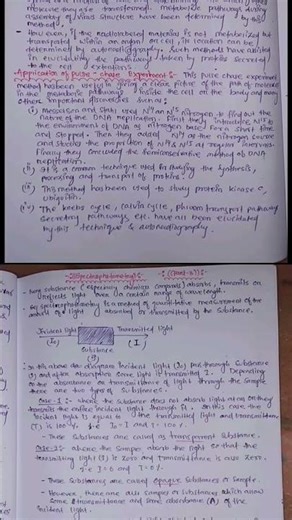 assembly of virus structure have been determined by this
method.
However, if the radiolabeled material is not metabolized but
transported within the organ or cell, its location can be
determined by autoradiography. Such methods have aided
in elucidating the pathways taken by proteins secreted
to the cell
Application of pulse-chase Experiment :- This pulse chase experiment
method has been useful in giving a clear picture of the path of molecule
in the metabolic pathways inside the cell on the body and many
other important discoveries such as :
Messelson and Stahl used N14 and N15 nitrogen to find out the
nature of the DNA replication. First they introduce N15 to
the environment of DNA as nitrogen base for a short time
and stopped. Then they added N14 as the nitrogen source
and studied the proportion of N14 & N15 at regular intervals.
Finally they concluded the semiconservative method of DNA
replication.
It is a common technique used for studying the synthesis
processing and transport of proteins.
This method has been used to study protein kinase C,
ubiquitin.
The Krebs cycle, calvin cycle, phloem transport pathway
Secretory pathways, etc. have all been elucidated
by this technique & autoradiography.
Spectrophotometry :-
- Every substance especially chemical compounds absorbs, transmits or
reflects light over a certain range of wavelength.
Spectrophotometry is a method of quantitative measurement of the
amount of light absorbed or transmitted by the substance.
Incident light
Transmitted light
(I0)
(I)
Substance
(S)
In the above diagram Incident light (I0) put through Substance
(S) and after absorption some light is transmitted I. Depending
on the absorbance or transmittance of light through the sample
there are two type of substances :
Case-I :- where the substance does not absorb light at all or they
transmits the entire incident light through it. In this case the
incident light is equal to the transmitted light and transmittance
(T) is 100%
These substances are called as transparent substance.
Case-2 :- where the samples absorb the light so that the
transmitting light (I) is zero and transmittance is also zero.
i.e. I = 0 & T = 0%
These substance are called opaque substances or sample.
However, there are also samples or substances which allow
some & transmittance and some absorbance (A) of the
incident light.